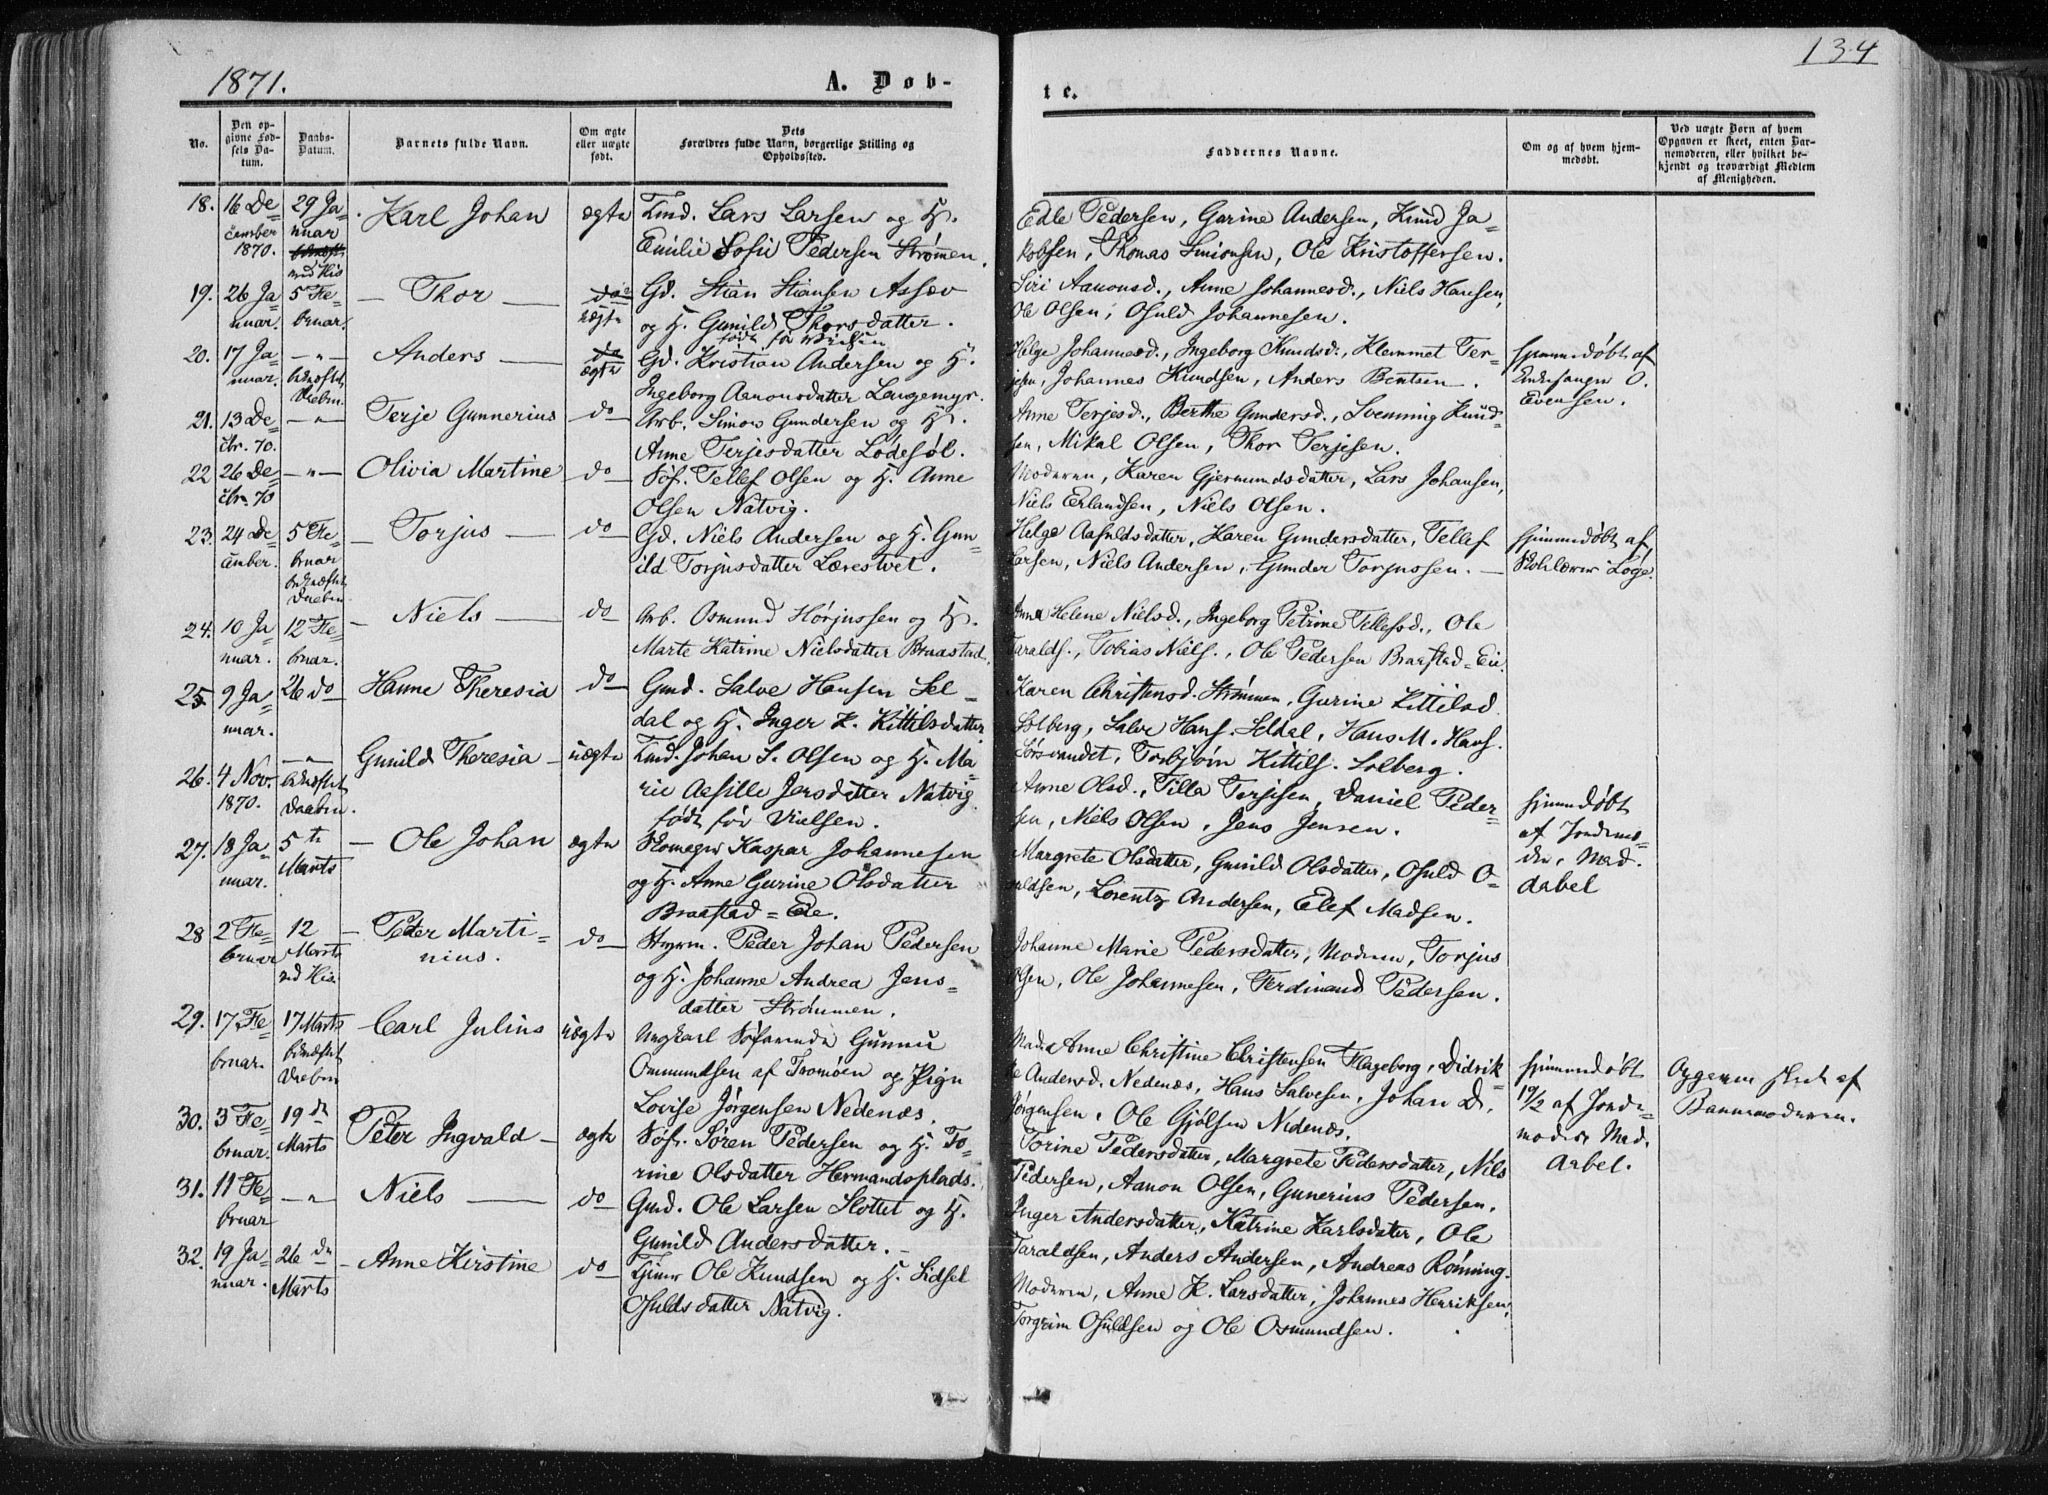 1871.
A. Døb-
te.
134
No.
Den op-
givne Fød-
sels Da-
tum.
Daabs-
Datum.
Barnets fulde Navn.
Om ægte
eller uægte
født.
Dets
Forældres fulde Navn, borgerlige Stilling og
Opholdssted.
Faddernes Navne.
Om og af hvem hjem-
medøbt.
Ved uægte Børn af hvem
Opgaven er skeet, enten Bar-
nemoderen, eller hvilket be-
kjendt og troværdigt Medlem
af Menigheden.
18. 16 De-
cember
1870.
29 Ja-
nuar
ved His
Karl Johan
ægte
Tmd. Lars Larsen og H.
Emilie Sofie Pedersen Strømen.
Edle Pedersen, Gurine Andersen, Knud Ja-
kobsen, Thomas Simonsen, Ole Kristoffersen.
19. 26 Ja-
nuar.
5 Fe-
bruar.
Thor
do
uægte
Gd. Stian Stiansen Assæv
og H. Gunild Thorsdatter.
født før Vielsen
Siri Aanonsd., Anne Johannesd., Niels Hansen,
Ole Olsen, Osuld Johannesen.
20. 17 Ja-
nuar.
— " —
bekræftet
Daaben
Anders
do
ægte
Gd. Kristian Andersen og H.
Ingeborg Aanonsdatter Longemyr.
Helge Johannesd., Ingeborg Knudsd., Klemmet Ter-
jesen, Johannes Knudsen, Anders Bentsen.
hjemmedøbt af
O.
Evensen.
21. 13 De-
cbr. 70.
— " —
Terje Gunnerius
do
Arb. Simon Gundersen og H.
Anne Terjesdatter Lødesøl.
Anne Terjesd., Berthe Gundersd., Svenning Knud-
sen, Mikal Olsen, Thor Terjesen.
22 26 De-
cbr. 70
— " —
Olivia Martine
do
Søf. Tellef Olsen og H. Anne
Olsen Natvig.
Moderen, Karen Gjermundsdatter, Lars Johansen,
Niels Erlandsen, Niels Olsen.
23. 24 De-
cember.
5 Fe-
bruar
bekræftet
Daaben
Torjus
do
Gd. Niels Andersen og H. Gun-
ild Torjusdatter Lærestvet.
Helge Aasuldsdatter, Karen Gundersdatter, Tellef
Larsen, Niels Andersen, Gunder Torjussen.
hjemmedøbt af
Skolelærer Løge.
24. 10 Ja-
nuar.
12 Fe-
bruar.
Niels
do
Arb. Osmund Torjussen og H.
Marte Katrine Nielsdatter Braastad.
Anna Helene Nielsd., Ingeborg Petrine Tellefsd., Ole
Taralds., Tobias Niels., Ole Pedersen Braastad-Eie.
25. 9 Ja-
nuar.
26 do
Hanne Theresia
do
Gmd. Salve Hansen Sel-
dal og H. Inger K. Kittilsdatter.
Karen Christensd. Strømmen, Gurine Kittilsd.
Solberg, Salve Hans. Seldal, Hans M. Hans.
Sørsvandet, Torbjørn Kittils. Solberg.
26. 4 Nov.
1870.
— " —
bekræftet
Daaben.
Gunild Theresia
uægte
Tmd. Johan S. Olsen og H. Ma-
rie Aasille Jensdatter Natvig
født før Vielsen.
Anne Olsd., Tilla Terjesen, Daniel Peder-
sen, Niels Olsen, Jens Jensen.
hjemmedøbt
af Jordemo-
der, Mad.
Aabel
27. 18 Ja-
nuar.
5te
Marts
Ole Johan
ægte
Skomager Kaspar Johannesen
og H. Anne Gurine Olsdatter
Braastad-Eie.
Margrete Olsdatter, Gunild Olsdatter, Osuld O-
suldsen, Lorentz Andersen, Elef Madsen.
28 2 Fe-
bruar
12
Marts
ved His.
Peder Marti-
nius.
do
Styrm. Peder Johan Pedersen
og H. Johanne Andrea Jens-
datter Strømmen.
Johanne Marie Pedersdatter, Moderen, Torjus
Olsen, Ole Johannesen, Ferdinand Pedersen.
29. 17 Fe-
bruar.
17 Marts
bekræftet
Daaben
Carl Julius
uægte
Ungkarl Søfarende Gunnu
Osmundsen af Tromøen og Pige
Lovise Jørgensen Nedenæs.
Mad. Anne Christine Christensen Flageborg, Didrik-
ke Andersd. Nedenæs, Hans Salvesen, Johan D.
Jørgensen, Ole Gjølsen Nedenæs.
hjemmedøbt
19/2 af Jorde-
moder Mad.
Arbel.
Opgaven skeet af
Barnemoderen.
30. 3 Fe-
bruar.
19de
Marts
Peter Ingvald
ægte
Søf. Søren Pedersen og H. To-
rine Olsdatter Hermandsplads.
Torine Pedersdatter, Margrete Pedersdatter, Nils
Pedersen, Aanon Olsen, Gunerius Pedersen.
31. 11 Fe-
bruar
— " —
Niels
do
Gmd. Ole Larsen Slottet og H.
Gunild Andersdatter.
Inger Andersdatter, Katrine Karlsdater, Ole
Taraldsen, Anders Andersen, Andreas Rønning.
32. 19 Ja-
nuar.
26de
Marts
Anne Kirstine
do
Ole Knudsen og H. Sidsel
Osuldsdatter Natvig.
Moderen, Anne K. Larsdatter, Johannes Henriksen,
Torgrim Osuldsen og Ole Osmundsen.